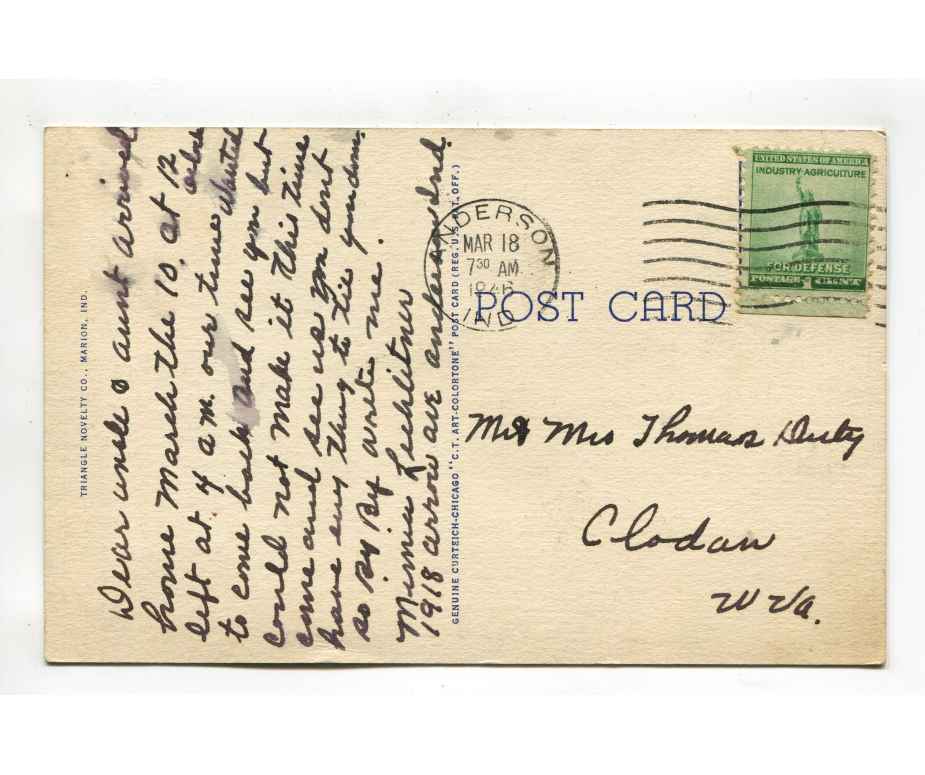 Dear uncle & aunt arrived
home March the 10. at 12
left at. 7 am. our time wanted
to come back and see you but
could not make it this time
come and see us you dont
have eny thing to tie you down.
so By By write me.
Minnie
1918 arrow ave anderson Ind.
TRIANGLE NOVELTY CO., MARION, IND.
GENUINE CURTEICH-CHICAGO "C.T. ART-COLORTONE" POST CARD (REG. U.S. PAT. OFF.)
ANDERSON
MAR 18
7 30 AM
1946
IND
POST CARD
UNITED STATES OF AMERICA
INDUSTRY AGRICULTURE
FOR DEFENSE
POSTAGE 1 CENT
Mr & Mrs Thomas
W Va.